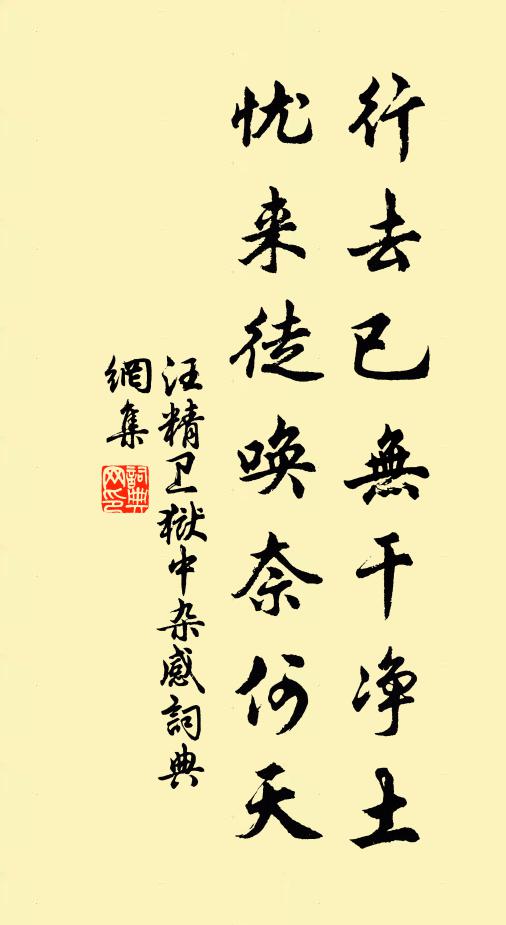 行去已無干净土
忧来徒唤奈何天
汪精卫獄中杂感詞典
網集
詞典网印